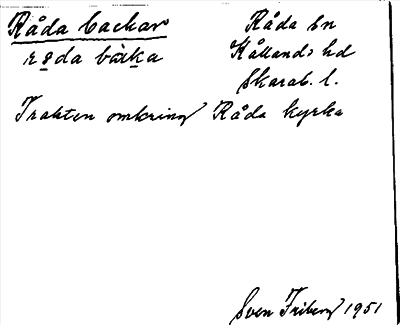 Råda backar
råda bäka
Råda sn
Kållands hd
Skarab. l.
Trakten omkring Råda kyrka
Sven Friberg 1951